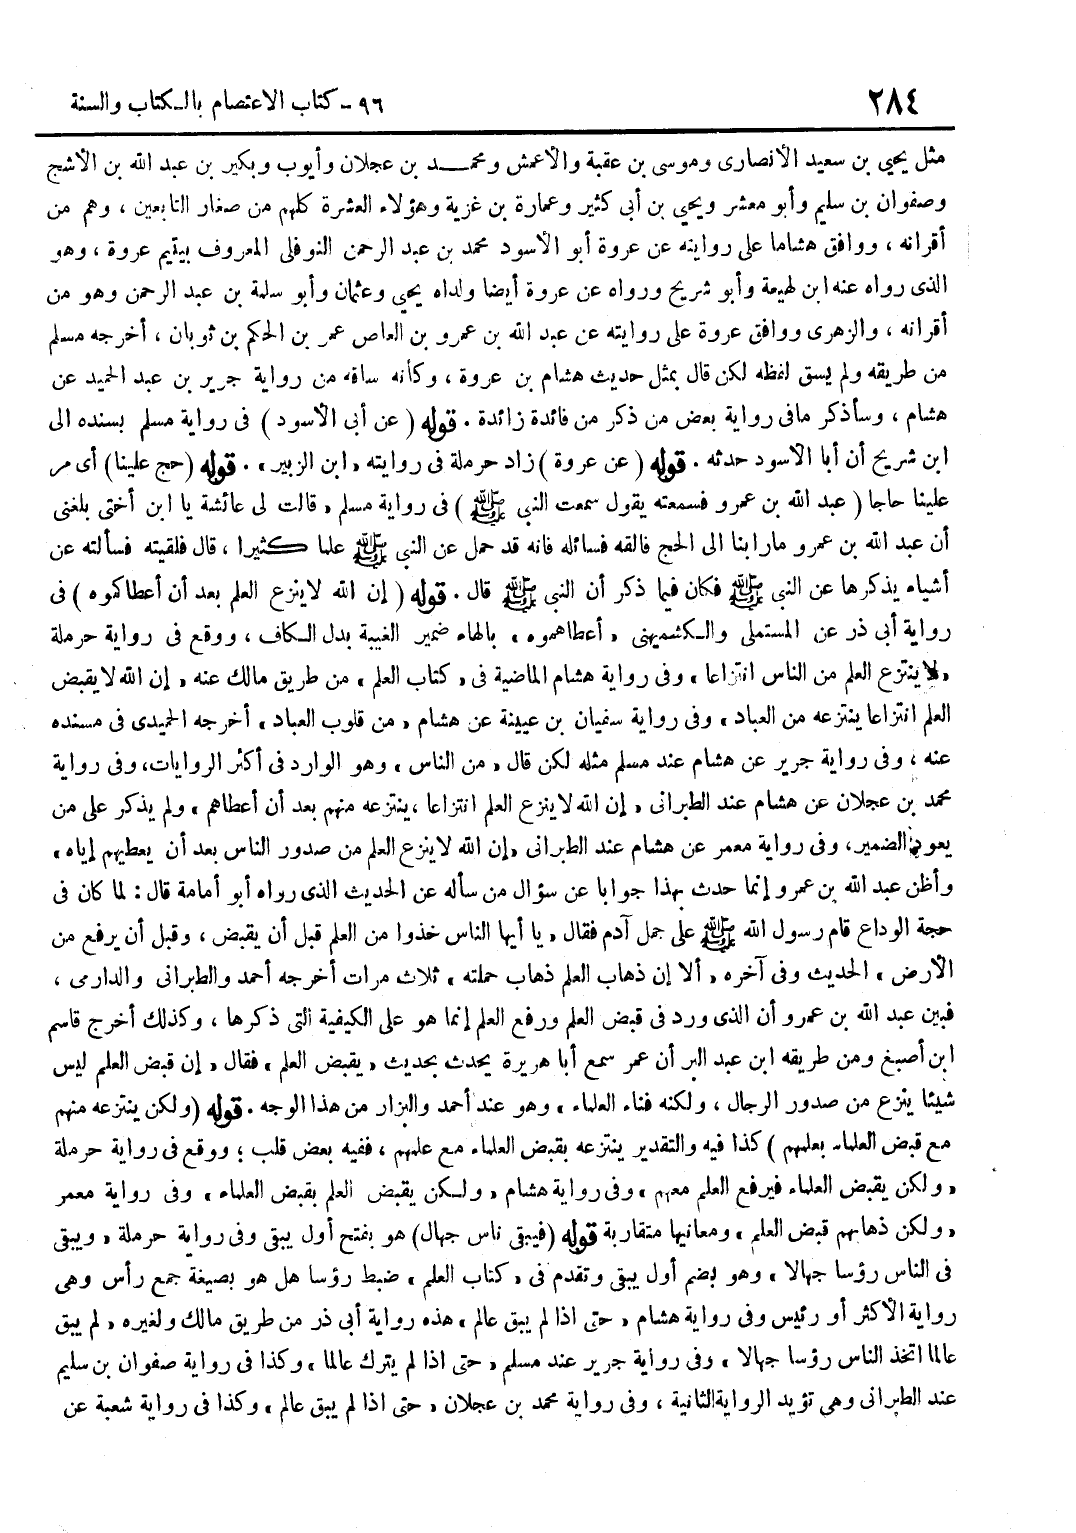 ٢٨٤
٩٦ - كتاب الاعتصام بالكتاب والسنة
مثل يحيى بن سعيد الأنصارى وموسى بن عقبة والأعمش ومحمد بن عجلان وأيوب وبكير بن عبد الله بن الأشج
وصفوان بن سليم وأبو معشر ويحيى بن أبى كثير وعمارة بن غزية وهؤلاء العشرة كلهم من صغار التابعين ، وهم من
أقرانه ، ووافق هشاما على روايته عن عروة أبو الأسود محمد بن عبد الرحمن النوفلى المعروف بيتيم عروة ، وهو
الذى رواه عنه ابن لهيعة وأبو شريح ورواه عن عروة أيضا ولداه يحيى وعثمان وأبو سلمة بن عبد الرحمن وهو من
أقرانه ، والزهرى ووافق عروة على روايته عن عبد الله بن عمرو بن العاص عمر بن الحكم بن ثوبان ، أخرجه مسلم
من طريقه ولم يسق لفظه لكن قال بمثل حديث هشام بن عروة ، وكأنه ساقه من رواية جرير بن عبد الحميد عن
هشام ، وسأذكر مافى رواية بعض من ذكر من فائدة زائدة . قوله ( عن أبى الأسود ) فى رواية مسلم بسنده الى
ابن شريح أن أبا الأسود حدثه . قوله ( عن عروة ) زاد حرملة فى روايته « ابن الزبير » . قوله (حج علينا) أى مر
علينا حاجا ( عبد الله بن عمرو فسمعته يقول سمعت النبى ﷺ ) فى رواية مسلم « قالت لى عائشة يا ابن أختى بلغنى
أن عبد الله بن عمرو مار بنا الى الحج فالقه فسائله فانه قد حمل عن النبى ﷺ علما كثيرا ، قال فلقيته فسألته عن
أشياء يذكرها عن النبى ﷺ فكان فيما ذكر أن النبى ﷺ قال . قوله ( إن الله لاينزع العلم بعد أن أعطاكموه ) فى
رواية أبى ذر عن المستملى والكشميهنى « أعطاهموه » بالهاء ضمير الغيبة بدل الكاف ، ووقع فى رواية حرملة
« لاينتزع العلم من الناس انتزاعا » وفى رواية هشام الماضية فى « كتاب العلم » من طريق مالك عنه « إن الله لايقبض
العلم انتزاعا ينتزعه من العباد » وفى رواية سفيان بن عيينة عن هشام « من قلوب العباد » أخرجه الحميدى فى مسنده
عنه ، وفى رواية جرير عن هشام عند مسلم مثله لكن قال « من الناس » وهو الوارد فى أكثر الروايات، وفى رواية
محمد بن عجلان عن هشام عند الطبرانى « إن الله لاينزع العلم انتزاعا ، ينتزعه منهم بعد أن أعطاهم » ولم يذكر على من
يعود الضمير، وفى رواية معمر عن هشام عند الطبرانى « إن الله لاينزع العلم من صدور الناس بعد أن يعطيهم إياه »
وأظن عبد الله بن عمرو إنما حدث بهذا جوابا عن سؤال من سأله عن الحديث الذى رواه أبو أمامة قال : لما كان فى
حجة الوداع قام رسول الله ﷺ على جمل آدم فقال « يا أيها الناس خذوا من العلم قبل أن يقبض ، وقبل أن يرفع من
الأرض » الحديث وفى آخره « ألا إن ذهاب العلم ذهاب حملته » ثلاث مرات أخرجه أحمد والطبرانى والدارمى ،
فبين عبد الله بن عمرو أن الذى ورد فى قبض العلم ورفع العلم إنما هو على الكيفية التى ذكرها ، وكذلك أخرج قاسم
ابن أصبغ ومن طريقه ابن عبد البر أن عمر سمع أبا هريرة يحدث بحديث « يقبض العلم » فقال « إن قبض العلم ليس
شيئا ينزع من صدور الرجال ، ولكنه فناء العلماء » وهو عند أحمد والبزار من هذا الوجه . قوله (ولكن ينتزعه منهم
مع قبض العلماء بعلمهم ) كذا فيه والتقدير ينتزعه بقبض العلماء مع علمهم ، ففيه بعض قلب ؛ ووقع فى رواية حرملة
« ولكن يقبض العلماء فيرفع العلم معهم » وفى رواية هشام « ولكن يقبض العلم بقبض العلماء » وفى رواية معمر
« ولكن ذهابهم قبض العلم » ومعانيها متقاربة قوله (فيبقى ناس جهال) هو بفتح أول يبقى وفى رواية حرملة « ويبقى
فى الناس رؤسا جهالا » وهو بضم أول يبقى وتقدم فى « كتاب العلم » ضبط رؤسا هل هو بصيغة جمع رأس وهى
رواية الأكثر أو رئيس وفى رواية هشام « حتى اذا لم يبق عالم » هذه رواية أبى ذر من طريق مالك ولغيره « لم يبق
عالما اتخذ الناس رؤسا جهالا » وفى رواية جرير عند مسلم « حتى اذا لم يترك عالما » وكذا فى رواية صفوان بن سليم
عند الطبرانى وهى تؤيد الرواية الثانية ، وفى رواية محمد بن عجلان « حتى اذا لم يبق عالم » وكذا فى رواية شعبة عن